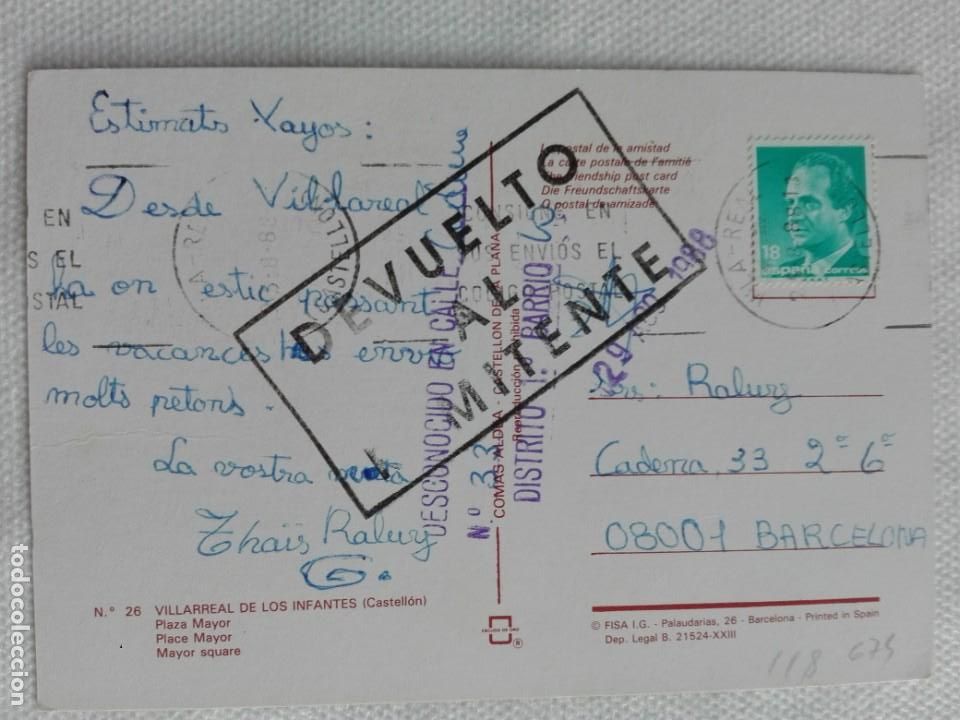 Estimats Yayos:
Desde Villareal
ha on estic passant
les vacances envio
molts petons.
La vostra
Thaïs Raluy
G.
N.º 26 VILLARREAL DE LOS INFANTES (Castellón)
Plaza Mayor
Place Mayor
Mayor square
DEVUELTO
AL
MITENTE
DESCONOCIDO EN CALLE
N.º 33
DISTRITO 1. BARRIO
29 1988
COMAS ALDEA - CASTELLON DE LA PLANA
Reproducción prohibida
La postal de la amistad
La carte postale de l'amitié
The friendship post card
Die Freundschaftskarte
O postal de amizade
CONSIGNE EN
SUS ENVIOS EL
CODIGO POSTAL
EN
S EL
STAL
18
ESPAÑA CORREOS
Srs: Raluy
Cadena, 33 2º 6º
08001 BARCELONA
© FISA I.G. - Palaudarias, 26 - Barcelona - Printed in Spain
Dep. Legal B. 21524-XXIII
118 675
todocoleccion